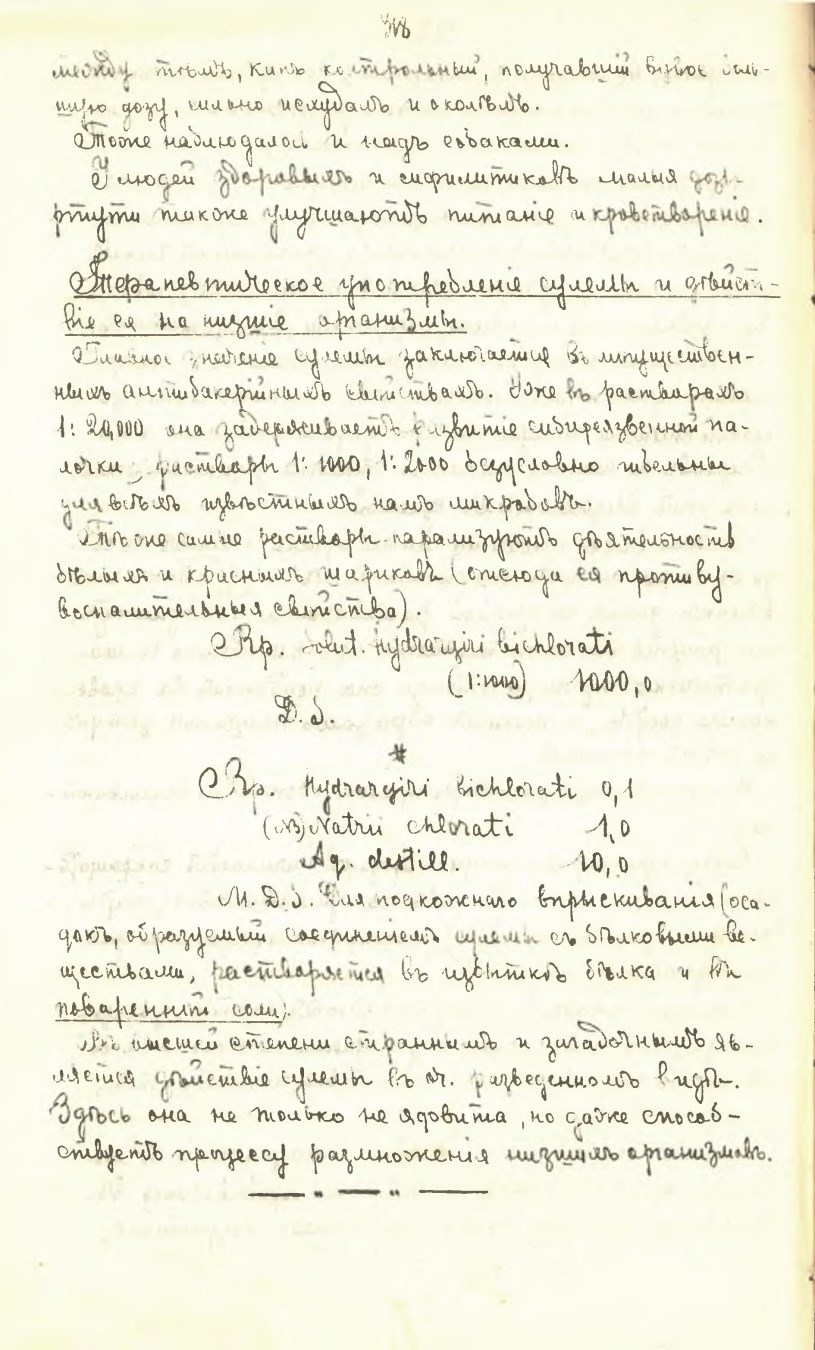 между тѣмъ, какъ контрольный, получавшій
шую дозу, сильно исхудалъ и околѣлъ.
Тоже наблюдалось и надъ собаками.
У людей здоровыхъ и сифилитиковъ малыя дозы
ртути также улучшаютъ питаніе и кровотвореніе.
Терапевтическое употребленіе сулемы и дѣйст-
віе ея на низшіе организмы.
Главное значеніе сулемы заключается въ могуществен-
ныхъ антибакерійныхъ свойствахъ. Уже въ растворахъ
1: 20,000 она задерживаетъ развитіе сибиреязвенной па-
лочки; растворы 1: 1000, 1: 2000 безусловно гибельны
для всѣхъ извѣстныхъ намъ микробовъ.
Тѣ же самые растворы парализуютъ дѣятельность
бѣлыхъ и красныхъ шариковъ (отсюда ея противу-
воспалительныя свойства).
Rp. solut. Hydrargiri bichlorati
(1:1000) 1000,0
D. S.
#
Rp. Hydrargiri bichlorati 0,1
(NB) Natrii chlorati 1,0
Aq. destill. 10,0
M. D. S. Для подкожнаго впрыскиванія (оса-
докъ, образуемый соединеніемъ сулемы съ бѣлковыми ве-
ществами, растворяется въ избыткѣ бѣлка и въ
поваренной соли).
Въ высшей степени страннымъ и загадочнымъ яв-
ляется дѣйствіе сулемы въ оч. разведенномъ видѣ.
Здѣсь она не только не ядовита, но даже способ-
ствуетъ процессу размноженія низшихъ организмовъ.